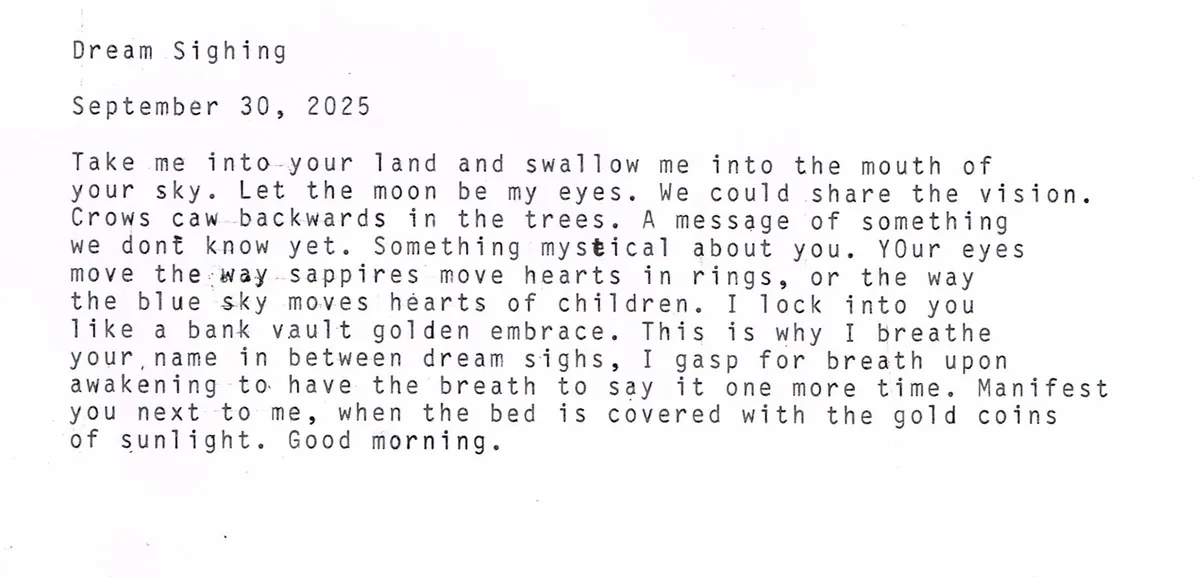 Dream Sighing
September 30, 2025
Take me into your land and swallow me into the mouth of
your sky. Let the moon be my eyes. We could share the vision.
Crows caw backwards in the trees. A message of something
we dont know yet. Something mystical about you. YOur eyes
move the way sappires move hearts in rings, or the way
the blue sky moves hearts of children. I lock into you
like a bank vault golden embrace. This is why I breathe
your name in between dream sighs, I gasp for breath upon
awakening to have the breath to say it one more time. Manifest
you next to me, when the bed is covered with the gold coins
of sunlight. Good morning.